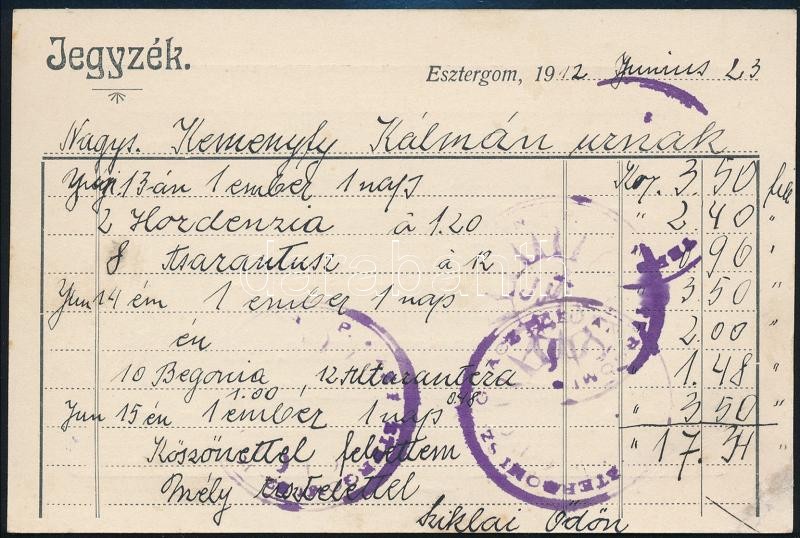 Jegyzék.
Esztergom, 1912 Junius 23
Nagys. Kemenyfy Kálmán urnak
13-án 1 ember 1 nap Kor. 3.50
2 Hordenzia á 1.20 " 2 40 "
8 á 12 " 0 96 "
Jun 14 én 1 ember 1 nap " 3 50 "
én " 2 00 "
10 Begonia 1.00 12 0.48 " 1.48 "
Jun 15 én 1 ember 1 nap " 3 50 "
Köszönettel felvettem " 17.34
Mély tisztelettel
Sziklai Ödön
darabanth